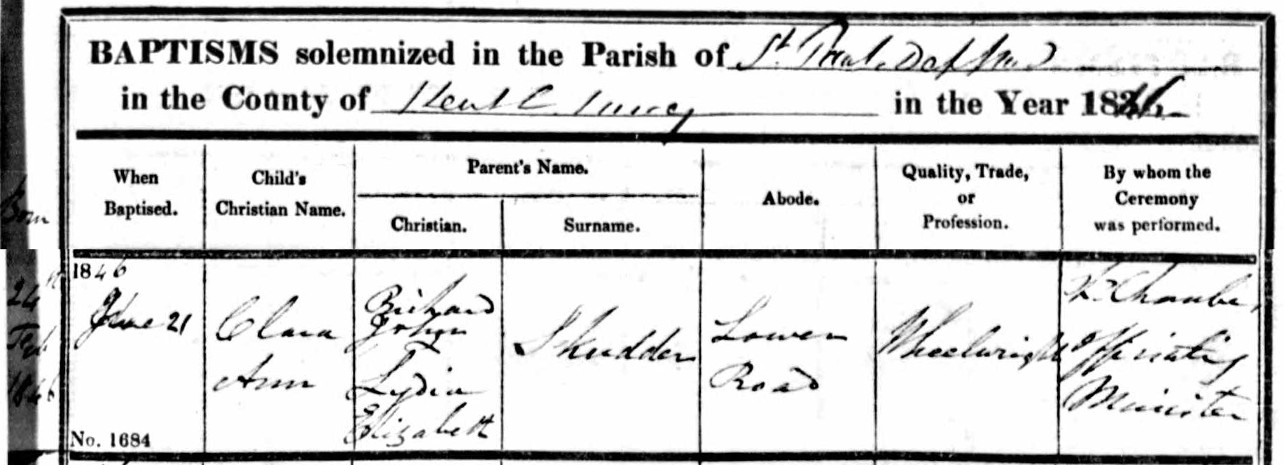 BAPTISMS solemnized in the Parish of St. Paul. Deptford
in the County of Kent & Surrey in the Year 1846
When Baptised.
Child's Christian Name.
Parent's Name.
Christian.
Surname.
Abode.
Quality, Trade, or Profession.
By whom the Ceremony was performed.
Born
24th
Feb
1846
1846
June 21
No. 1684
Clara
Ann
Richard
John
Lydia
Elizabeth
Skudder
Lower
Road
Wheelwright
Chamber
Officiating
Minister